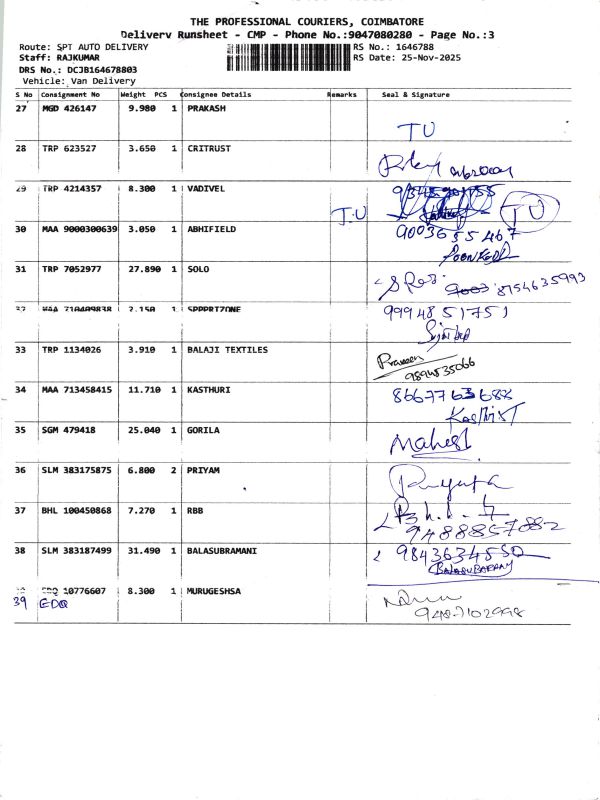 THE PROFESSIONAL COURIERS, COIMBATORE
Delivery Runsheet - CMP - Phone No.:9047080280 - Page No.:3
Route: SPT AUTO DELIVERY RS No.: 1646788
Staff: RAJKUMAR RS Date: 25-Nov-2025
DRS No.: DCJB164678803
Vehicle: Van Delivery
S No Consignment No Weight PCS Consignee Details Remarks Seal & Signature
27 MGD 426147 9.980 1 PRAKASH
TU
28 TRP 623527 3.650 1 CRITRUST
29 TRP 4214357 8.300 1 VADIVEL
T.U TU
30 MAA 9000300639 3.050 1 ABHIFIELD 9003655467
31 TRP 7052977 27.890 1 SOLO
8754635993
32 MAA 710409838 2.150 1 SPPPRIZONE 9994851751
33 TRP 1134026 3.910 1 BALAJI TEXTILES
Praveen
9894535066
34 MAA 713458415 11.710 1 KASTHURI 8667763688
35 SGM 479418 25.040 1 GORILA
Mahesh
36 SLM 383175875 6.800 2 PRIYAM
37 BHL 100450868 7.270 1 RBB
9488857882
38 SLM 383187499 31.490 1 BALASUBRAMANI 9843634550
EDQ 10776607 8.300 1 MURUGESHSA
39 EDQ